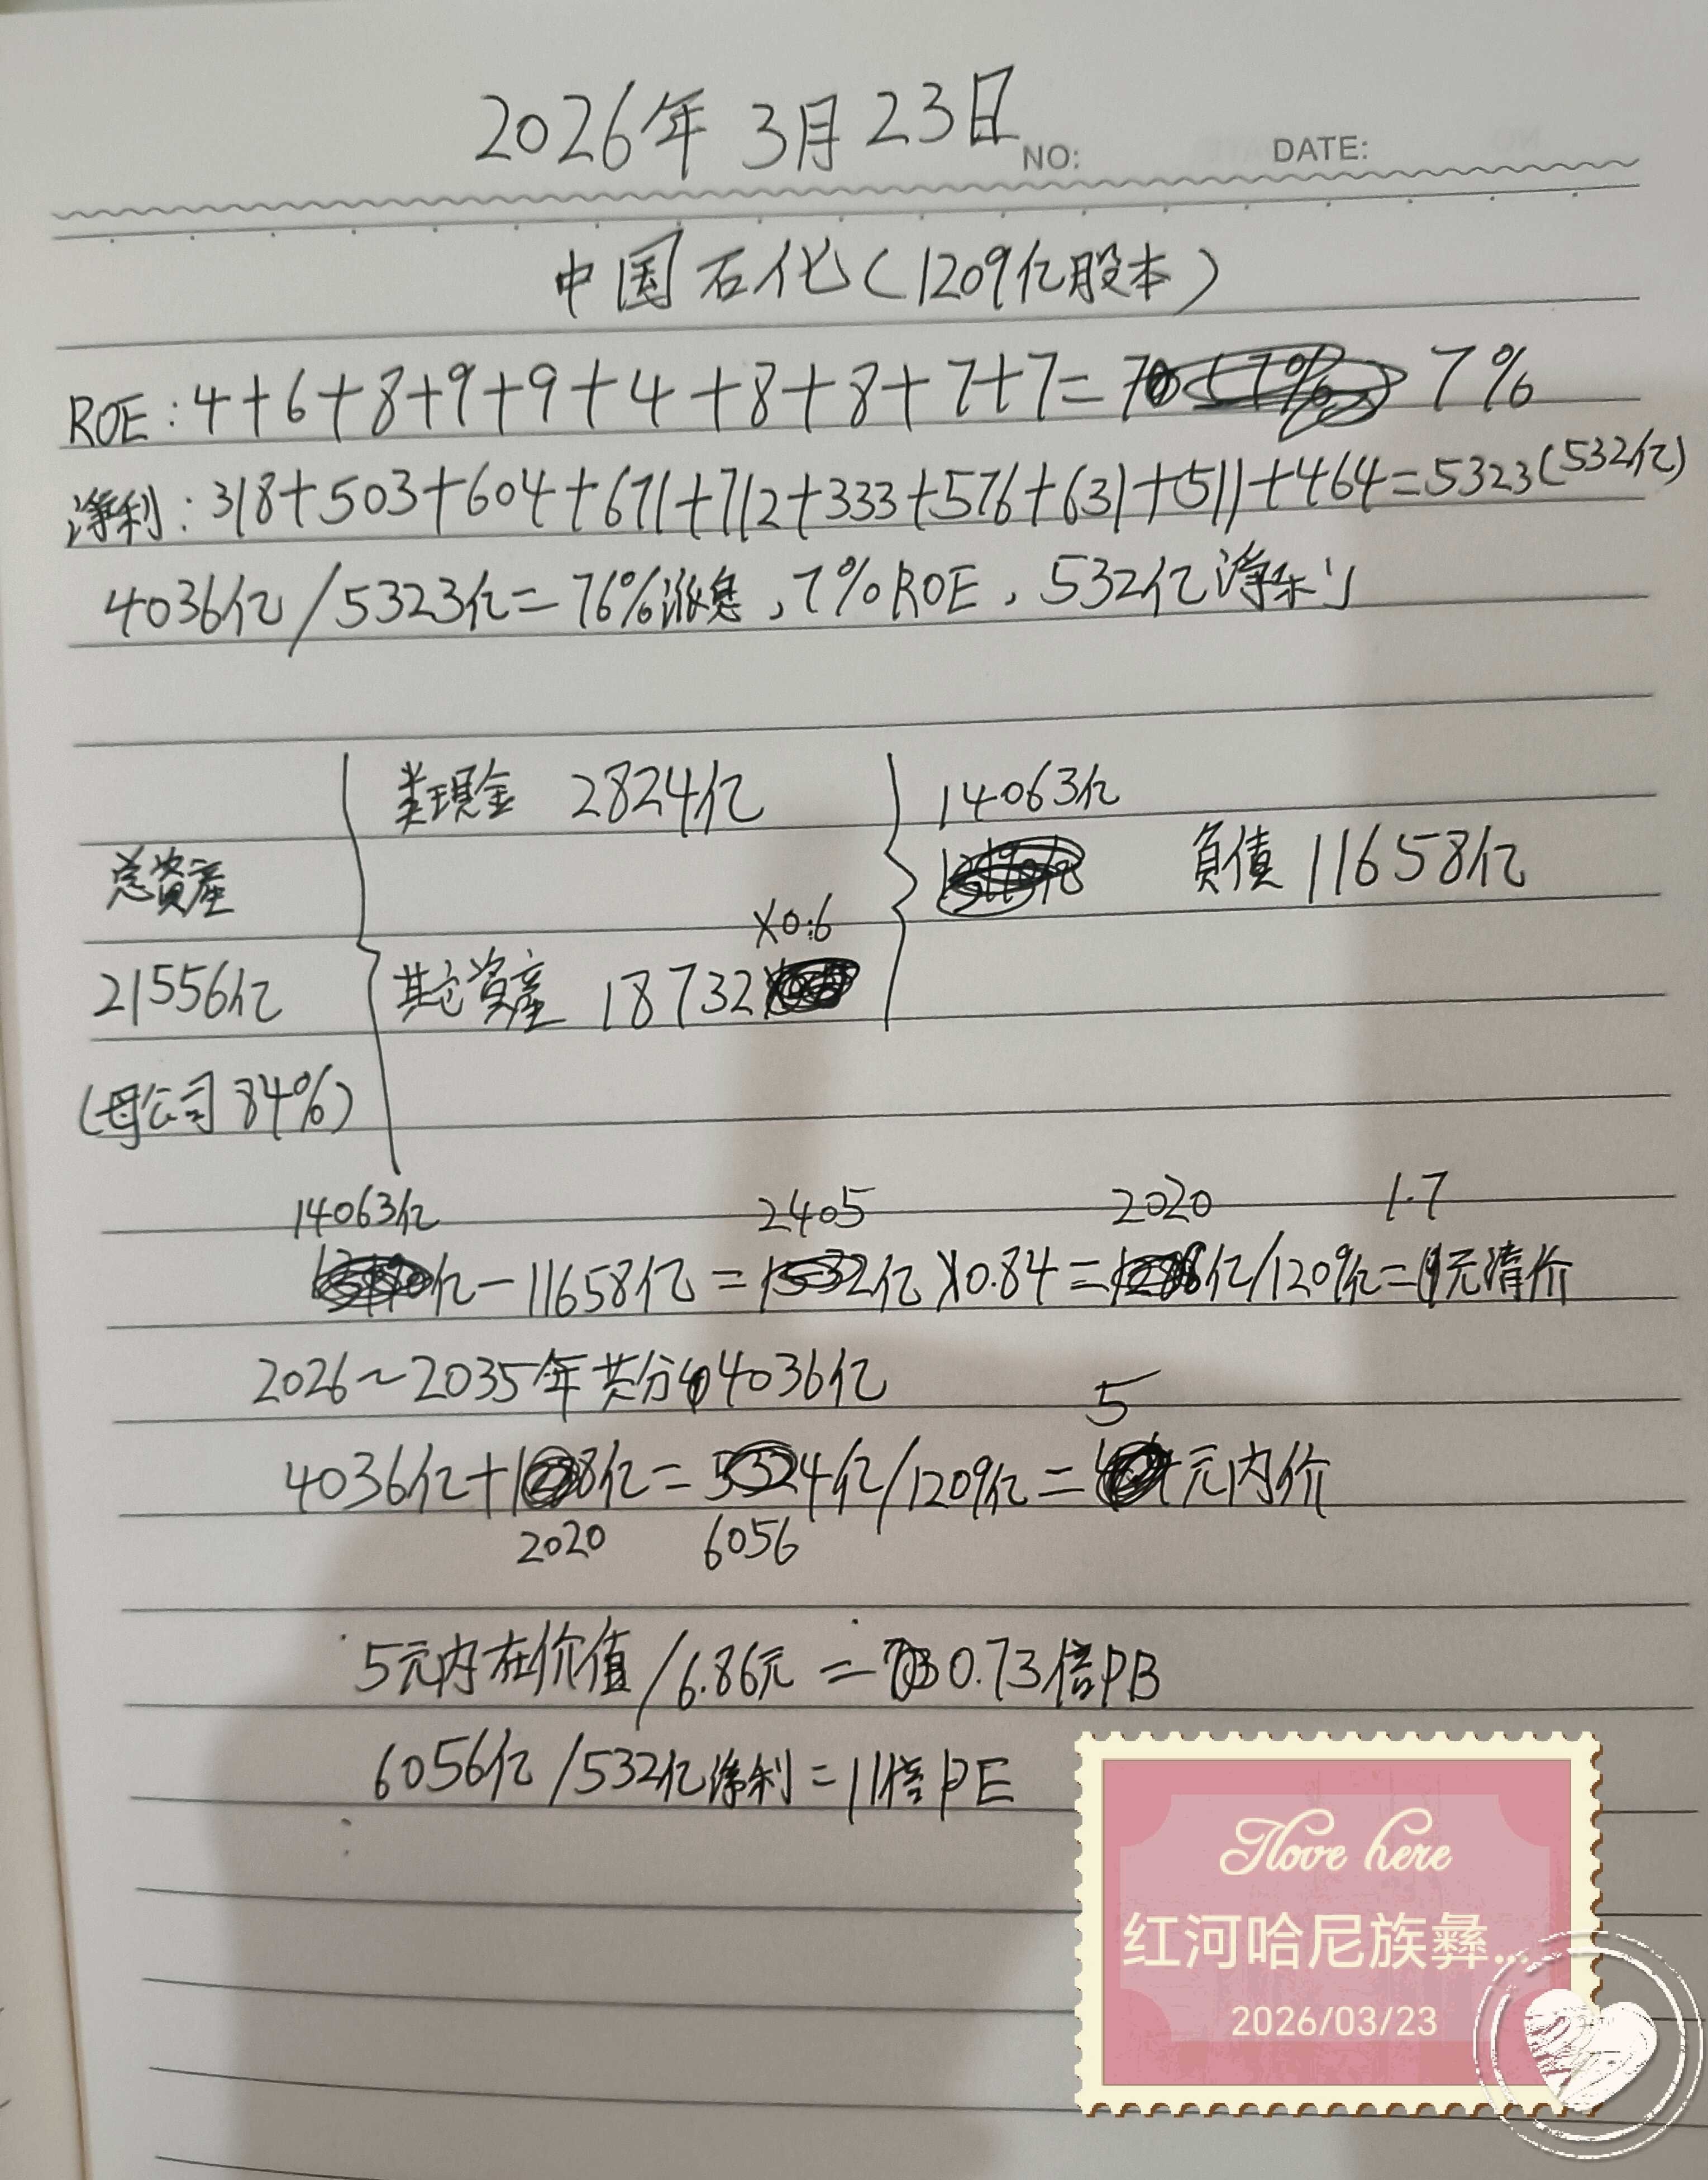 2026年3月23日
NO:
DATE:
中国石化(1209亿股本)
ROE:4+6+8+9+9+4+8+8+7+7=70 7%
净利:318+503+604+671+712+333+576+631+511+464=5323(532亿)
4036亿/5323亿=76%派息,7%ROE,532亿净利
类現金 2824亿
14063亿
总資産
負債11658亿
×0.6
21556亿
其它資産 18732
(母公司84%)
14063亿 2405 2020 1.7
亿-11658亿=亿×0.84=亿/1209亿=元清价
2026~2035年共分4036亿
5
4036亿+亿=亿/1209亿=元内价
2020 6056
5元内在价值/6.86元=0.73倍PB
6056亿/532亿净利=11倍PE
I love here
红河哈尼族彝...
2026/03/23